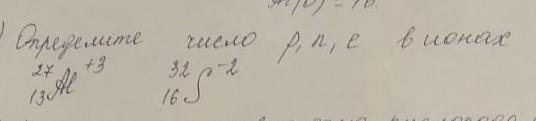 Определите число p, n, e в ионах
²⁷₁₃Al⁺³ ³²₁₆S⁻²